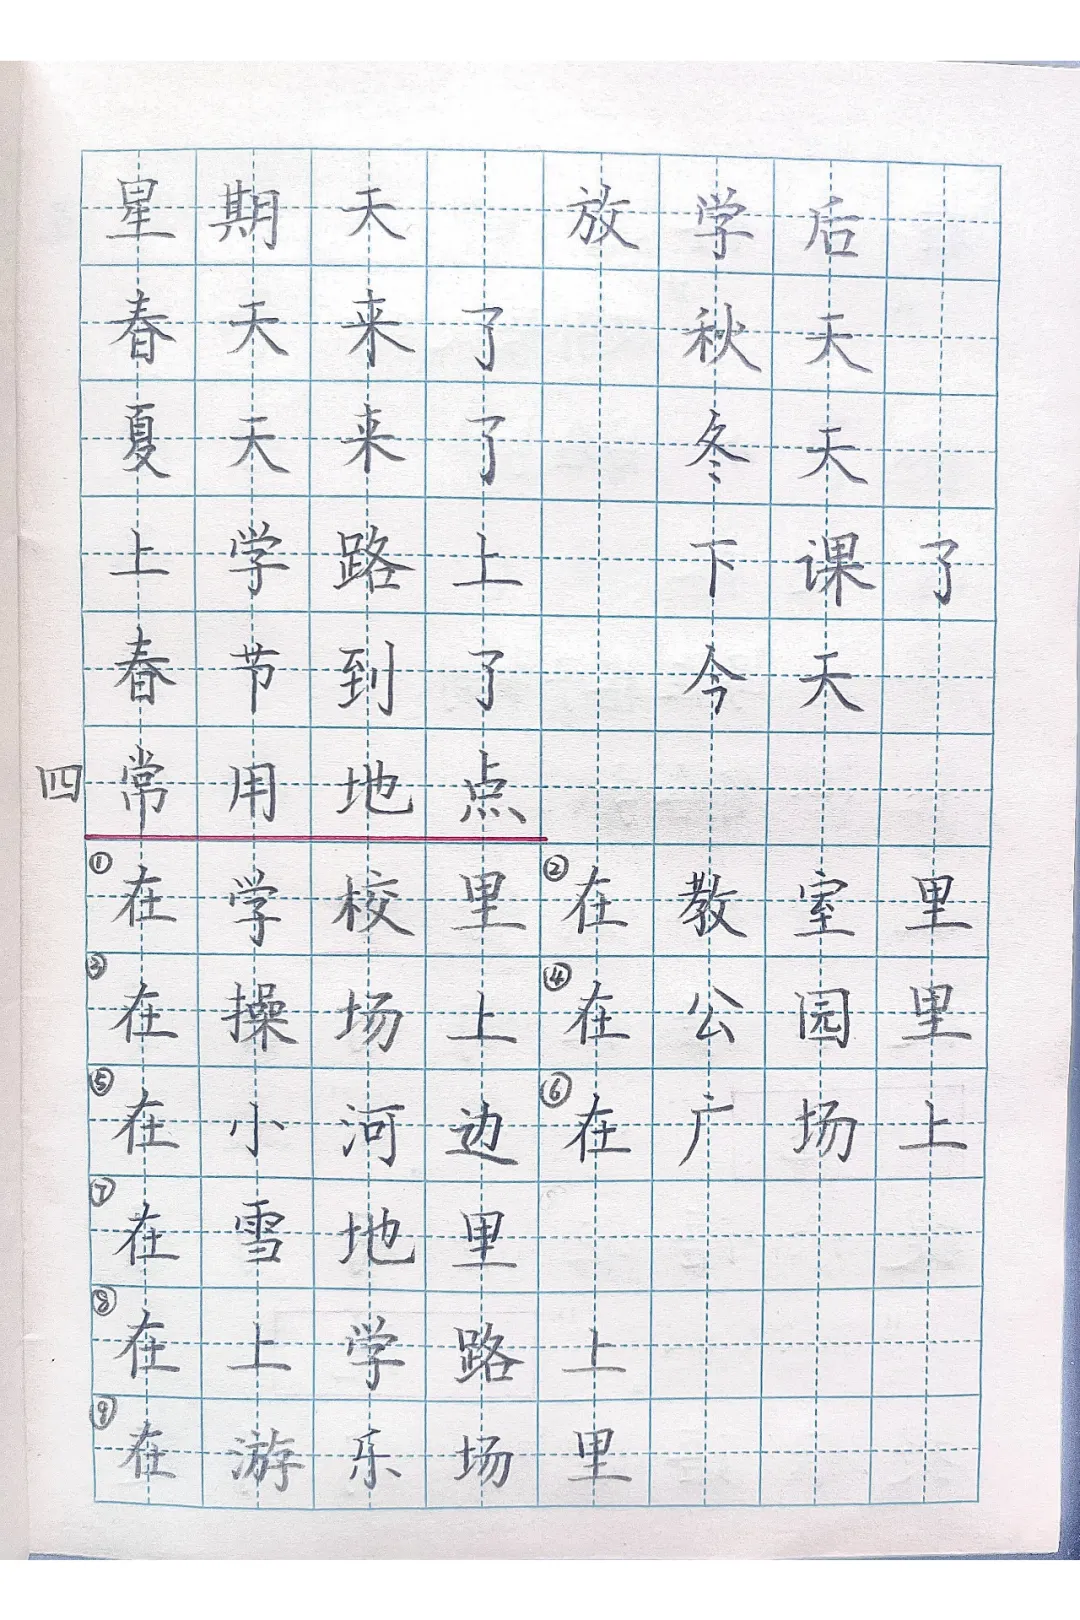 星期天 放学后
春天来了 秋天
夏天来了 冬天
上学路上 下课了
春节到了 今天
四 常用地点
①在学校里 ②在教室里
③在操场上 ④在公园里
⑤在小河边 ⑥在广场上
⑦在雪地里
⑧在上学路上
⑨在游乐场里